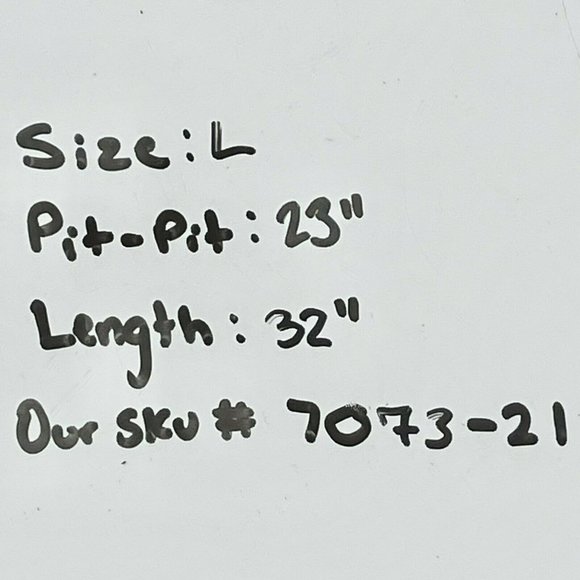 Size: L
Pit-Pit: 23"
Length: 32"
Our SKU # 7073-21